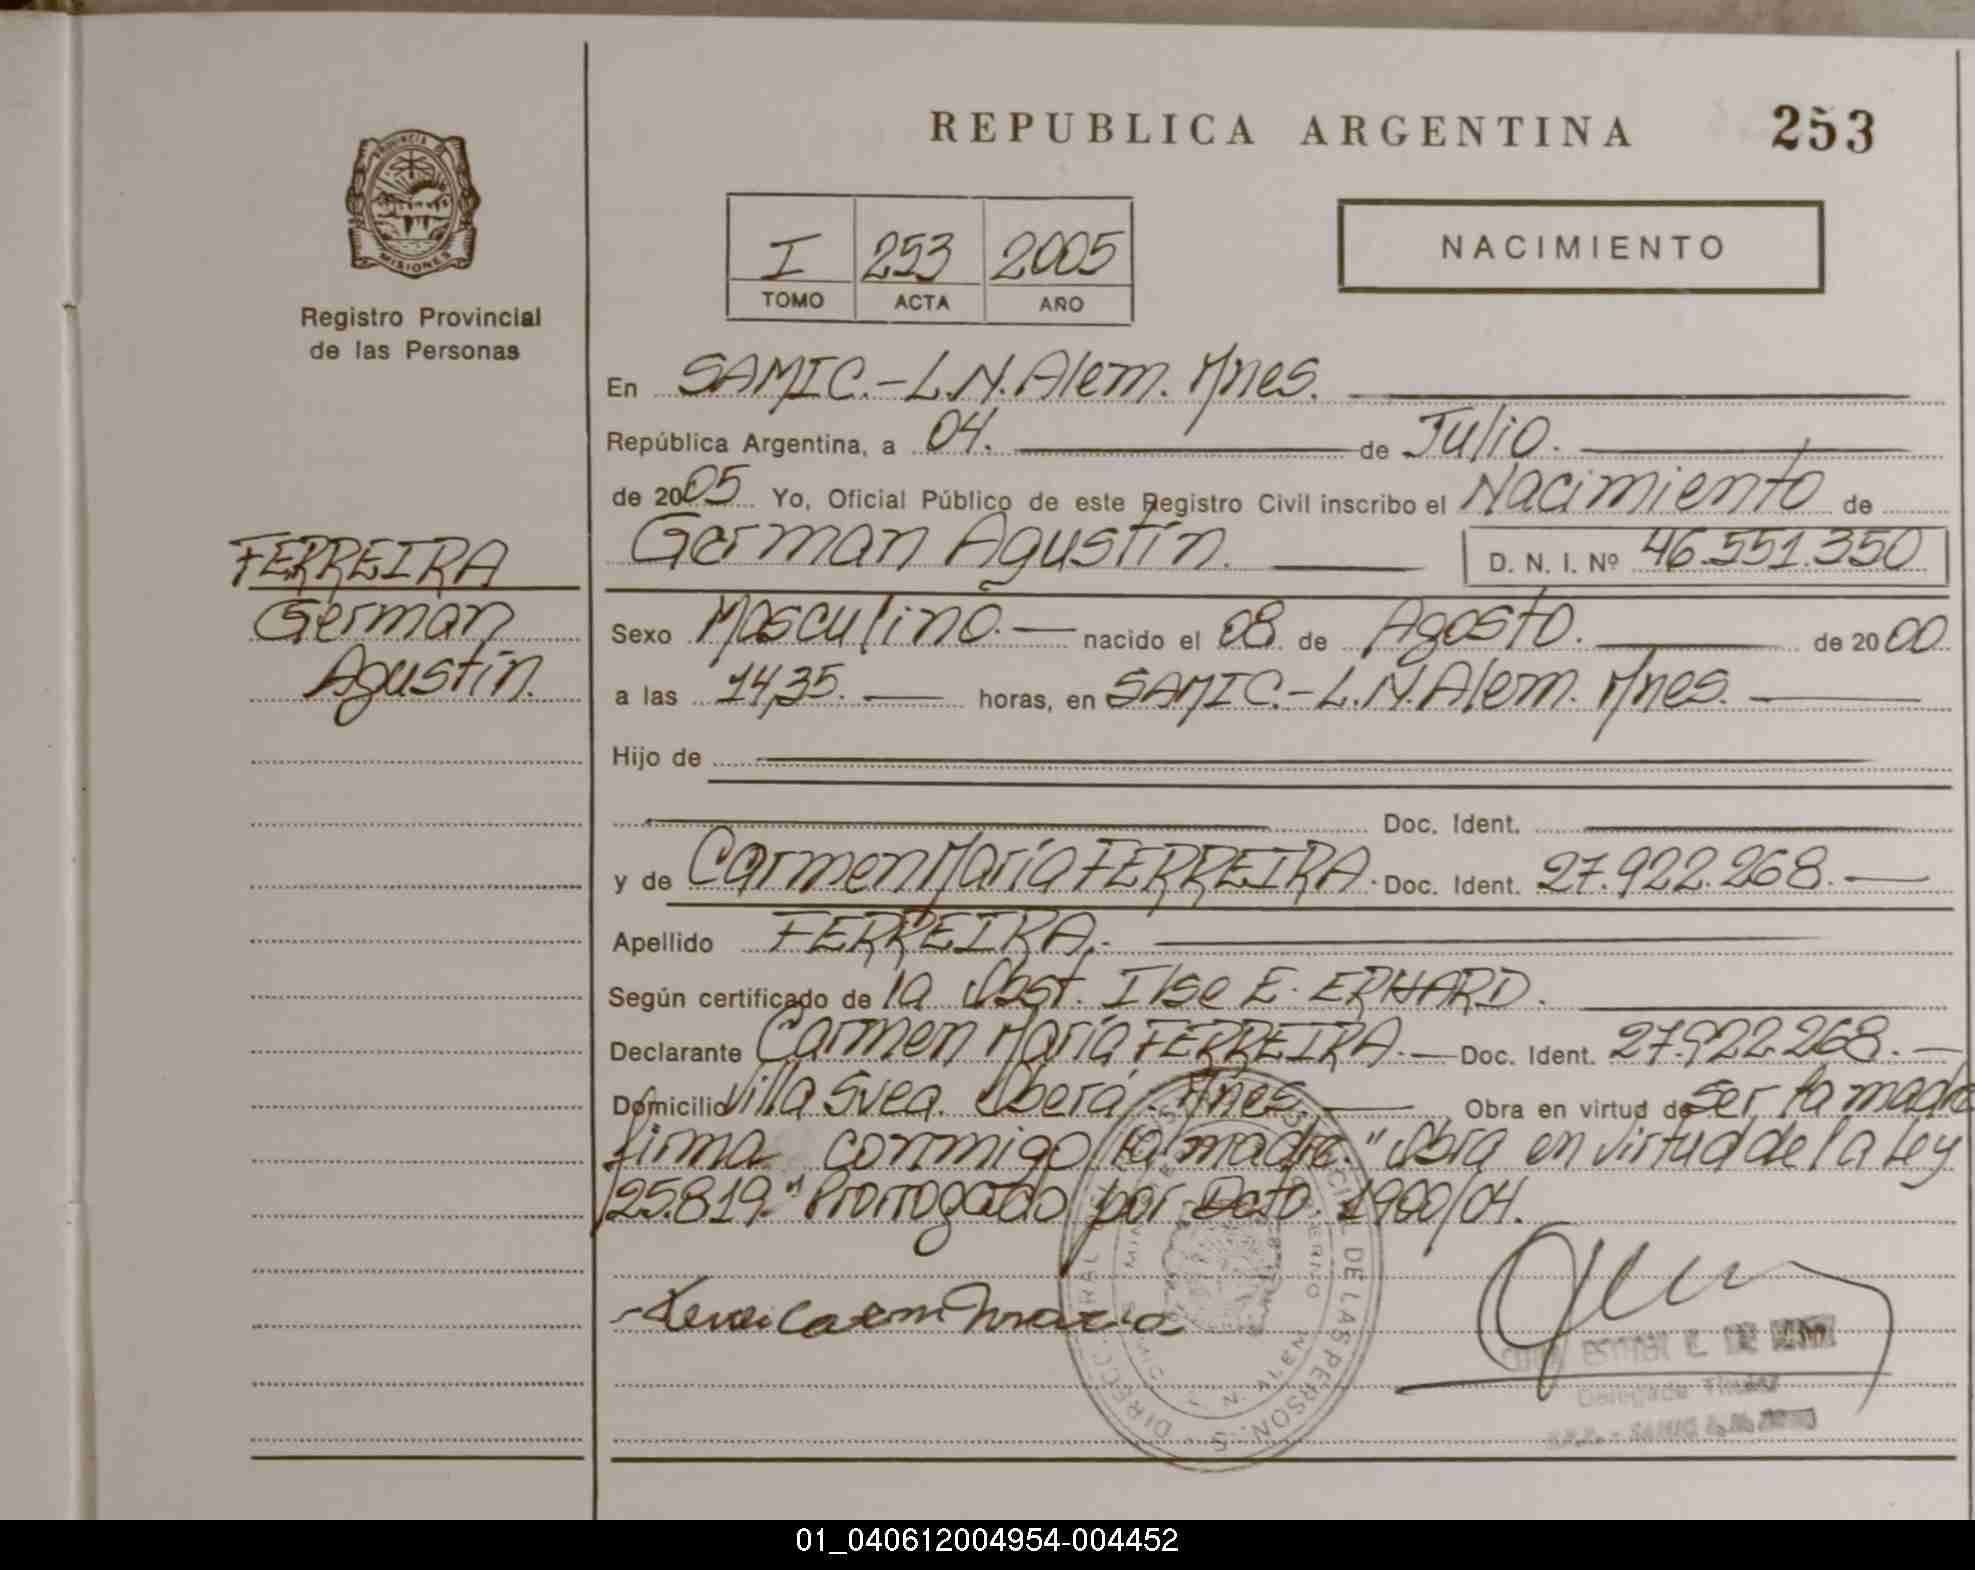 REPUBLICA ARGENTINA
253
PROVINCIA DE
MISIONES
Registro Provincial
de las Personas
I 253 2005
TOMO ACTA AÑO
NACIMIENTO
En SAMIC.-L.N.Alem. Mnes.
República Argentina, a 04. de Julio.
de 2005 Yo, Oficial Público de este Registro Civil inscribo el Nacimiento de
FERREIRA
German
Agustín.
German Agustín. D. N. I. Nº 46.551.350
Sexo Masculino.- nacido el 08 de Agosto. de 2000
a las 14,35. horas, en SAMIC.-L.N.Alem. Mnes.
Hijo de
Doc. Ident.
y de Carmen María FERREIRA. Doc. Ident. 27.922.268.-
Apellido FERREIRA.-
Según certificado de la Obst. Ilse E. ERHARD.
Declarante Carmen María FERREIRA.- Doc. Ident. 27.922.268.-
Domicilio Villa Svea. Oberá. Mnes. Obra en virtud de ser la madre
firma conmigo la madre. "Obra en virtud de la Ley
25.819." Prorrogado por Dcto. 1900/04.
DE LAS PERSONAS
Delegada Titular
01_040612004954-004452